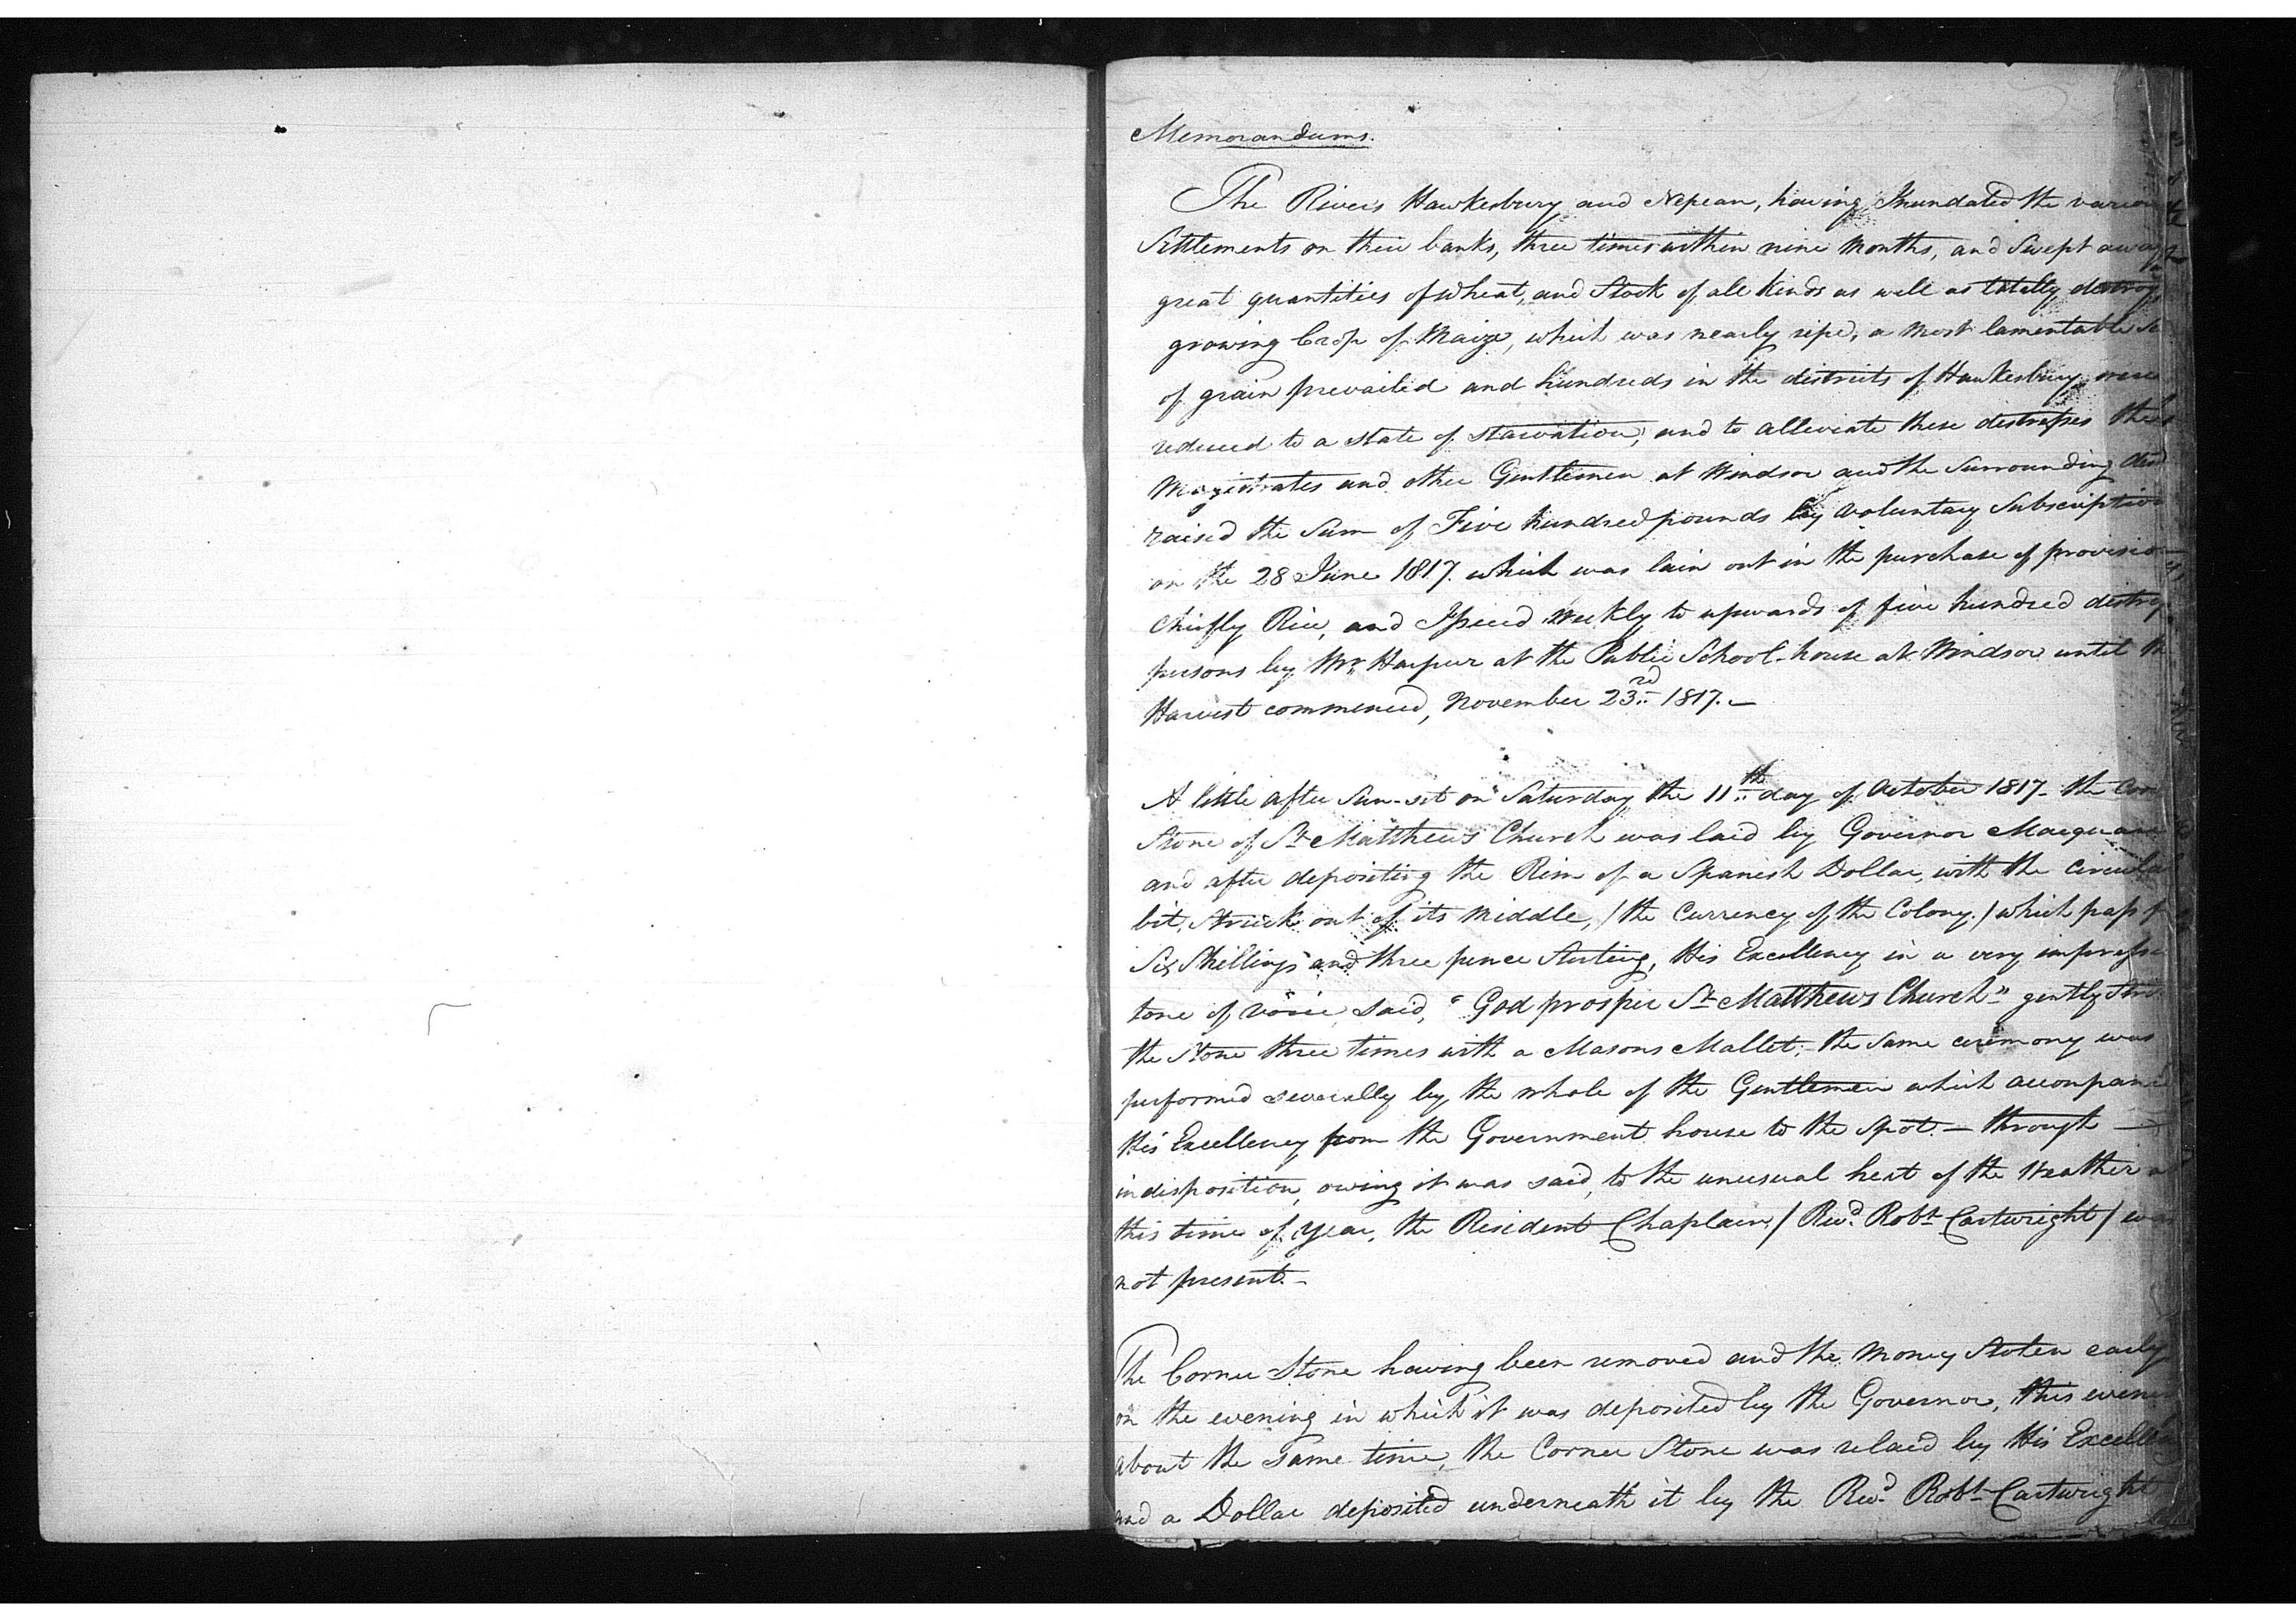 Memorandums.
The Rivers Hawkesbury and Nepean, having Inundated the variou
Settlements on their banks, three times within nine Months, and Swept away
great quantities of Wheat, and Stock of all Kinds as well as totally destroy
growing Crop of Maize, which was nearly ripe, a most lamentable Sc
of grain prevailed and hundreds in the districts of Hawkesbury were
reduced to a state of starvation, and to alleviate these distresses the
Magistrates and other Gentlemen at Windsor and the Surrounding dist
raised the Sum of Five hundred pounds by Voluntary Subscription
on the 28 June 1817. which was lain out in the purchase of provisio
Chiefly Rice, and Issued Weekly to upwards of five hundred distre
persons by Mr. Harpur at the Public School-house at Windsor until th
Harvest commenced, November 23rd 1817.-
A little after Sun-set on Saturday the 11th day of October 1817- the Cor
Stone of St. Matthews Church was laid by Governor Macquar
and after depositing the Rim of a Spanish Dollar, with the Circula
bit, Struck out of its Middle, / the Currency of the Colony. / which pass f
Six Shillings and three pence Sterling, His Excellency in a very impresse
tone of voice, said, "God prosper St. Matthews Church" gently Stri
the Stone three times with a Masons Mallet; the Same ceremony was
performed severally by the whole of the Gentlemen which accompanie
His Excellency from the Government house to the spot. - through -
indisposition, owing it was said, to the unusual heat of the Weather a
this time of Year, the Resident Chaplain, / Revd. Robt. Cartwright / was
not present.-
The Corner Stone having been removed and the Money Stolen early
on the evening in which it was deposited by the Governor, this eveni
about the Same time, the Corner Stone was relaid by His Excelle
and a Dollar deposited underneath it by the Revd. Robt. Cartwright